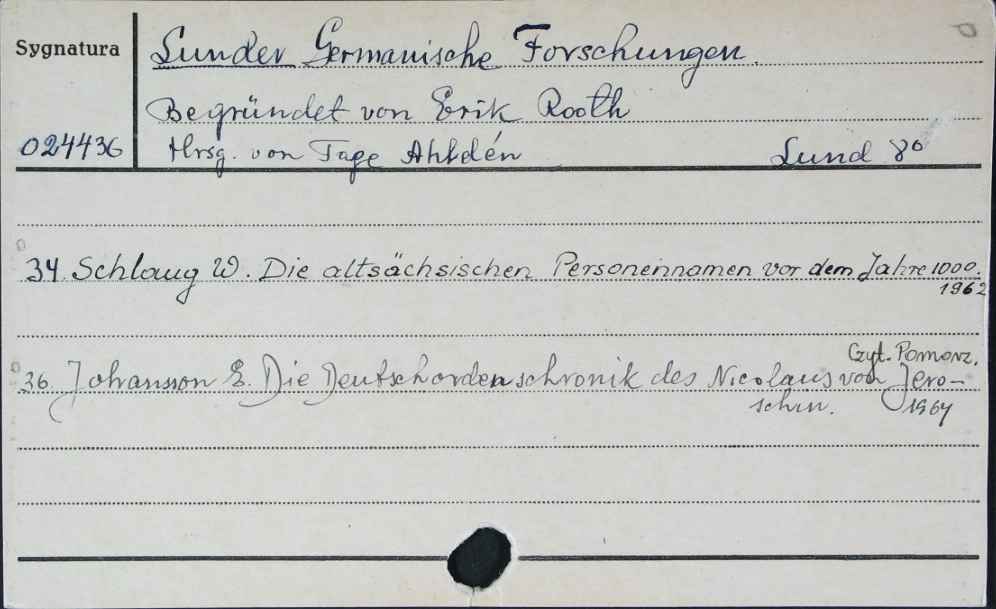 Sygnatura
Lunder Germanische Forschungen.
Begründet von Erik Rooth
024436 Hrsg. von Tage Ahldén Lund 8°
34. Schlaug W. Die altsächsischen Personennamen vor dem Jahre 1000.
1962
Czyt. Pomorz.
36. Johansson E. Die Deutschordenschronik des Nicolaus von Jero-
schin. 1964